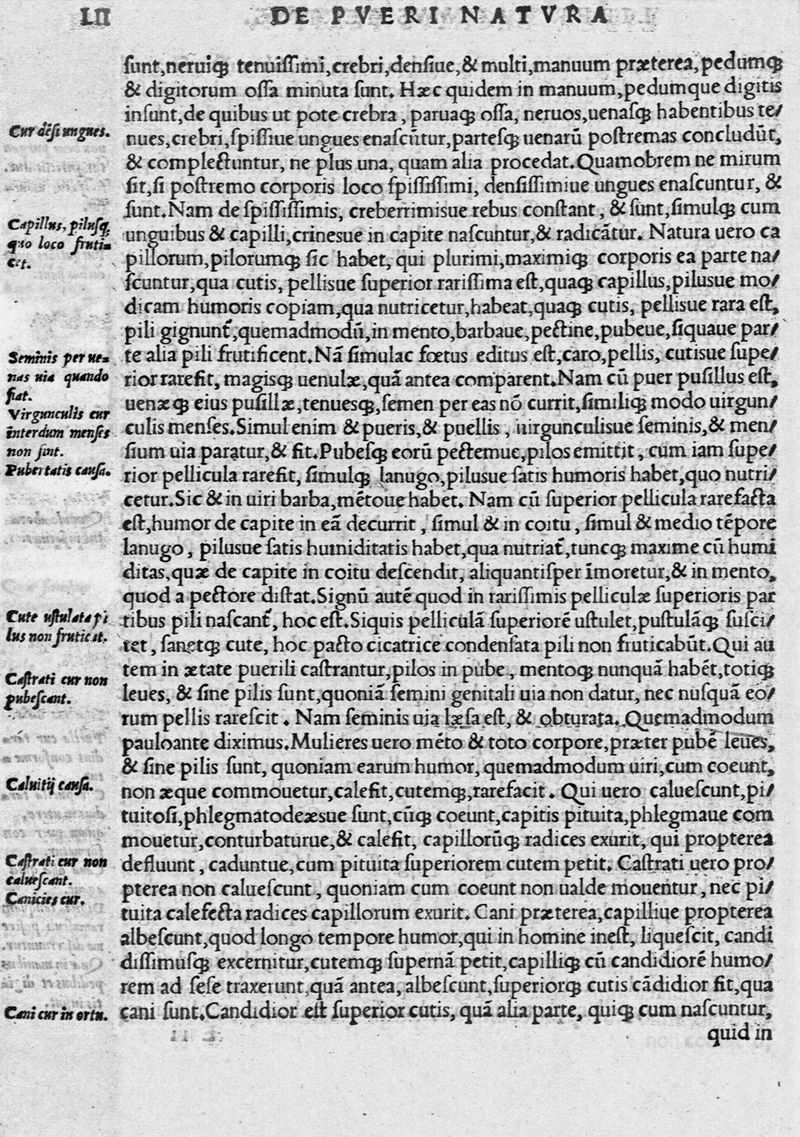 LII DE PVERI NATVRA
ſunt,neruiq́; tenuiſſimi,crebri,denſiue,& multi,manuum præterea,pedumq́;
& digitorum oſſa minuta ſunt. Hæc quidem in manuum,pedumque digitis
inſunt,de quibus ut pote crebra, paruaq́; oſſa, neruos,uenaſq́; habentibus te/
Cur dēſi ungues.
nues,crebri,ſpiſſiue ungues enaſcūtur,parteſq́; uenarū poſtremas concludūt,
& complectuntur, ne plus una, quam alia procedat.Quamobrem ne mirum
ſit,ſi poſtremo corporis loco ſpiſſiſſimi, denſiſſimiue ungues enaſcuntur, &
ſunt.Nam de ſpiſſiſſimis, creberrimisue rebus conſtant, & ſunt,ſimulq́; cum
Capillus, piluſq́;
quo loco fruti=
cet.
unguibus & capilli,crinesue in capite naſcuntur,& radicātur. Natura uero ca
pillorum,pilorumq́; ſic habet, qui plurimi,maximiq́; corporis ea parte na/
ſcuntur,qua cutis, pellisue ſuperior rariſſima eſt,quaq́; capillus,pilusue mo/
dicam humoris copiam,qua nutricetur,habeat,quaq́; cutis, pellisue rara eſt,
pili gignunt̃,quemadmodū,in mento,barbaue,pectine,pubeue,ſiquaue par/
Seminis per ue=
nas uia quando
fiat.
te alia pili frutificent.Nā ſimulac fœtus editus eſt,caro,pellis, cutisue ſupe/
rior rarefit, magisq́; uenulæ,quā antea comparent.Nam cū puer puſillus eſt,
uenæq́; eius puſillæ,tenuesq́;,ſemen per eas nō currit,ſimiliq́; modo uirgun/
Virgunculis cur
interdum menſes
non ſint.
culis menſes.Simul enim & pueris,& puellis, uirgunculisue ſeminis,& men/
ſium uia paratur,& fit.Pubeſq́; eorū pectemue,pilos emittit, cum iam ſupe/
Pubertatis cauſa.
rior pellicula rarefit,ſimulq́; lanugo,pilusue ſatis humoris habet,quo nutri/
cetur.Sic & in uiri barba,mētoue habet. Nam cū ſuperior pellicula rarefacta
eſt,humor de capite in eā decurrit, ſimul & in coitu, ſimul & medio tēpore
lanugo, pilusue ſatis humiditatis habet,qua nutriat̃,tuncq́; maxime cū humi
ditas,quæ de capite in coitu deſcendit, aliquantiſper īmoretur,& in mento,
quod a pectore diſtat.Signū autē quod in rariſſimis pelliculæ ſuperioris par
Cute uſtulata pi
lus non fruticat.
tibus pili naſcant̃, hoc eſt.Siquis pelliculā ſuperiorē uſtulet,puſtulāq́; ſuſci/
tet, ſanetq́; cute, hoc pacto cicatrice condenſata pili non fruticabūt.Qui au
tem in ætate puerili caſtrantur,pilos in pube, mentoq́; nunquā habēt,totiq́;
Caſtrati cur non
pubeſcant.
leues, & ſine pilis ſunt,quoniā ſemini genitali uia non datur, nec nuſquā eo/
rum pellis rareſcit. Nam ſeminis uia læſa eſt, & obturata. Quemadmodum
pauloante diximus.Mulieres uero mēto & toto corpore,præter pubē leues,
& ſine pilis ſunt, quoniam earum humor, quemadmodum uiri,cum coeunt,
Caluitij cauſa.
non æque commouetur,calefit,cutemq́;,rarefacit. Qui uero calueſcunt,pi/
tuitoſi,phlegmatodeæsue ſunt,cūq́; coeunt,capitis pituita,phlegmaue com
mouetur,conturbaturue,& calefit, capillorūq́; radices exurit, qui propterea
Caſtrati cur non
calueſcant.
defluunt, caduntue,cum pituita ſuperiorem cutem petit. Caſtrati uero pro/
pterea non calueſcunt, quoniam cum coeunt non ualde mouentur, nec pi/
Canicies cur.
tuita calefecta radices capillorum exurit. Cani præterea,capilliue propterea
albeſcunt,quod longo tempore humor,qui in homine ineſt, liqueſcit, candi
diſſimuſq́; excernitur,cutemq́; ſupernā petit,capilliq́; cū candidiorē humo/
rem ad ſeſe traxerunt,quā antea, albeſcunt,ſuperiorq́; cutis cādidior fit,qua
Cani cur in ortu.
cani ſunt.Candidior eſt ſuperior cutis, quā alia parte, quiq́; cum naſcuntur,
quid in